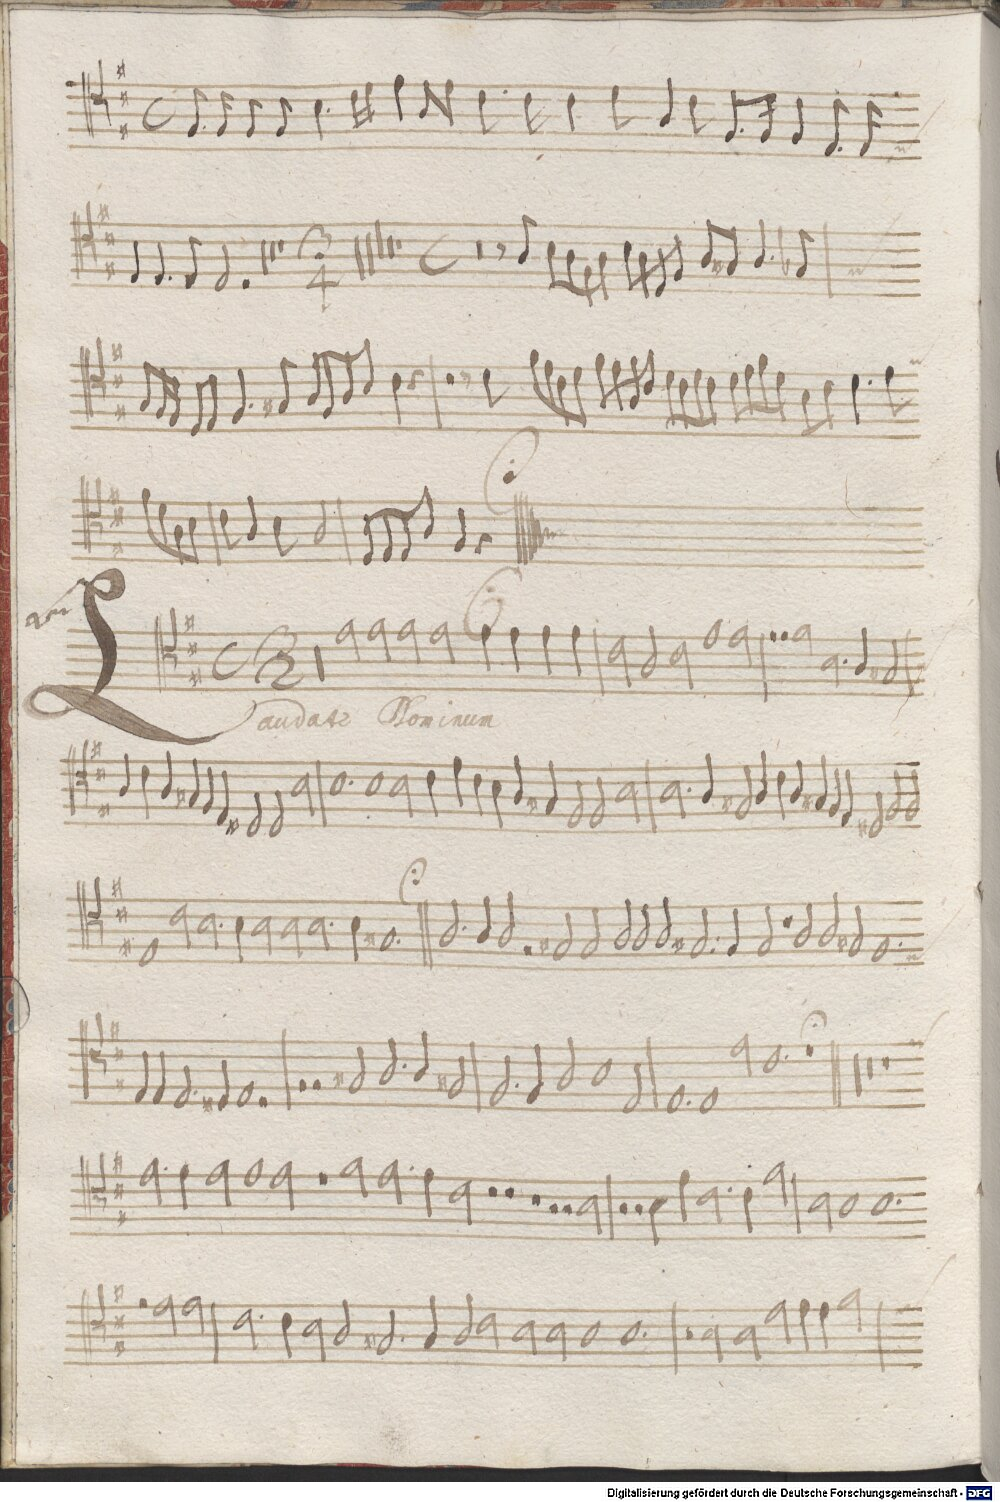 C
3
4
C
C 3
2
Laudate Dominum
Digitalisierung gefördert durch die Deutsche Forschungsgemeinschaft - DFG